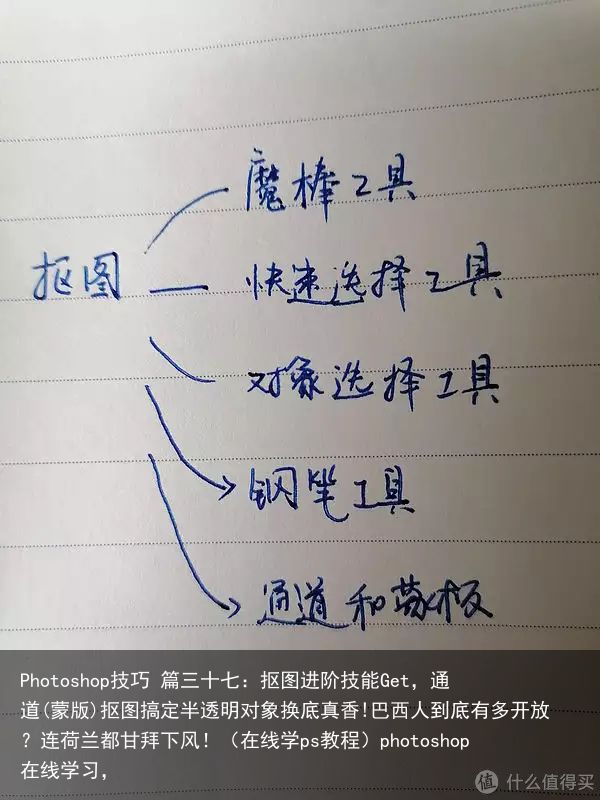 魔棒工具
抠图 快速选择工具
对象选择工具
钢笔工具
通道和蒙板
Photoshop技巧 篇三十七：抠图进阶技能Get，通
道(蒙版)抠图搞定半透明对象换底真香!巴西人到底有多开放
？连荷兰都甘拜下风！（在线学ps教程）photoshop
在线学习，
值 什么值得买